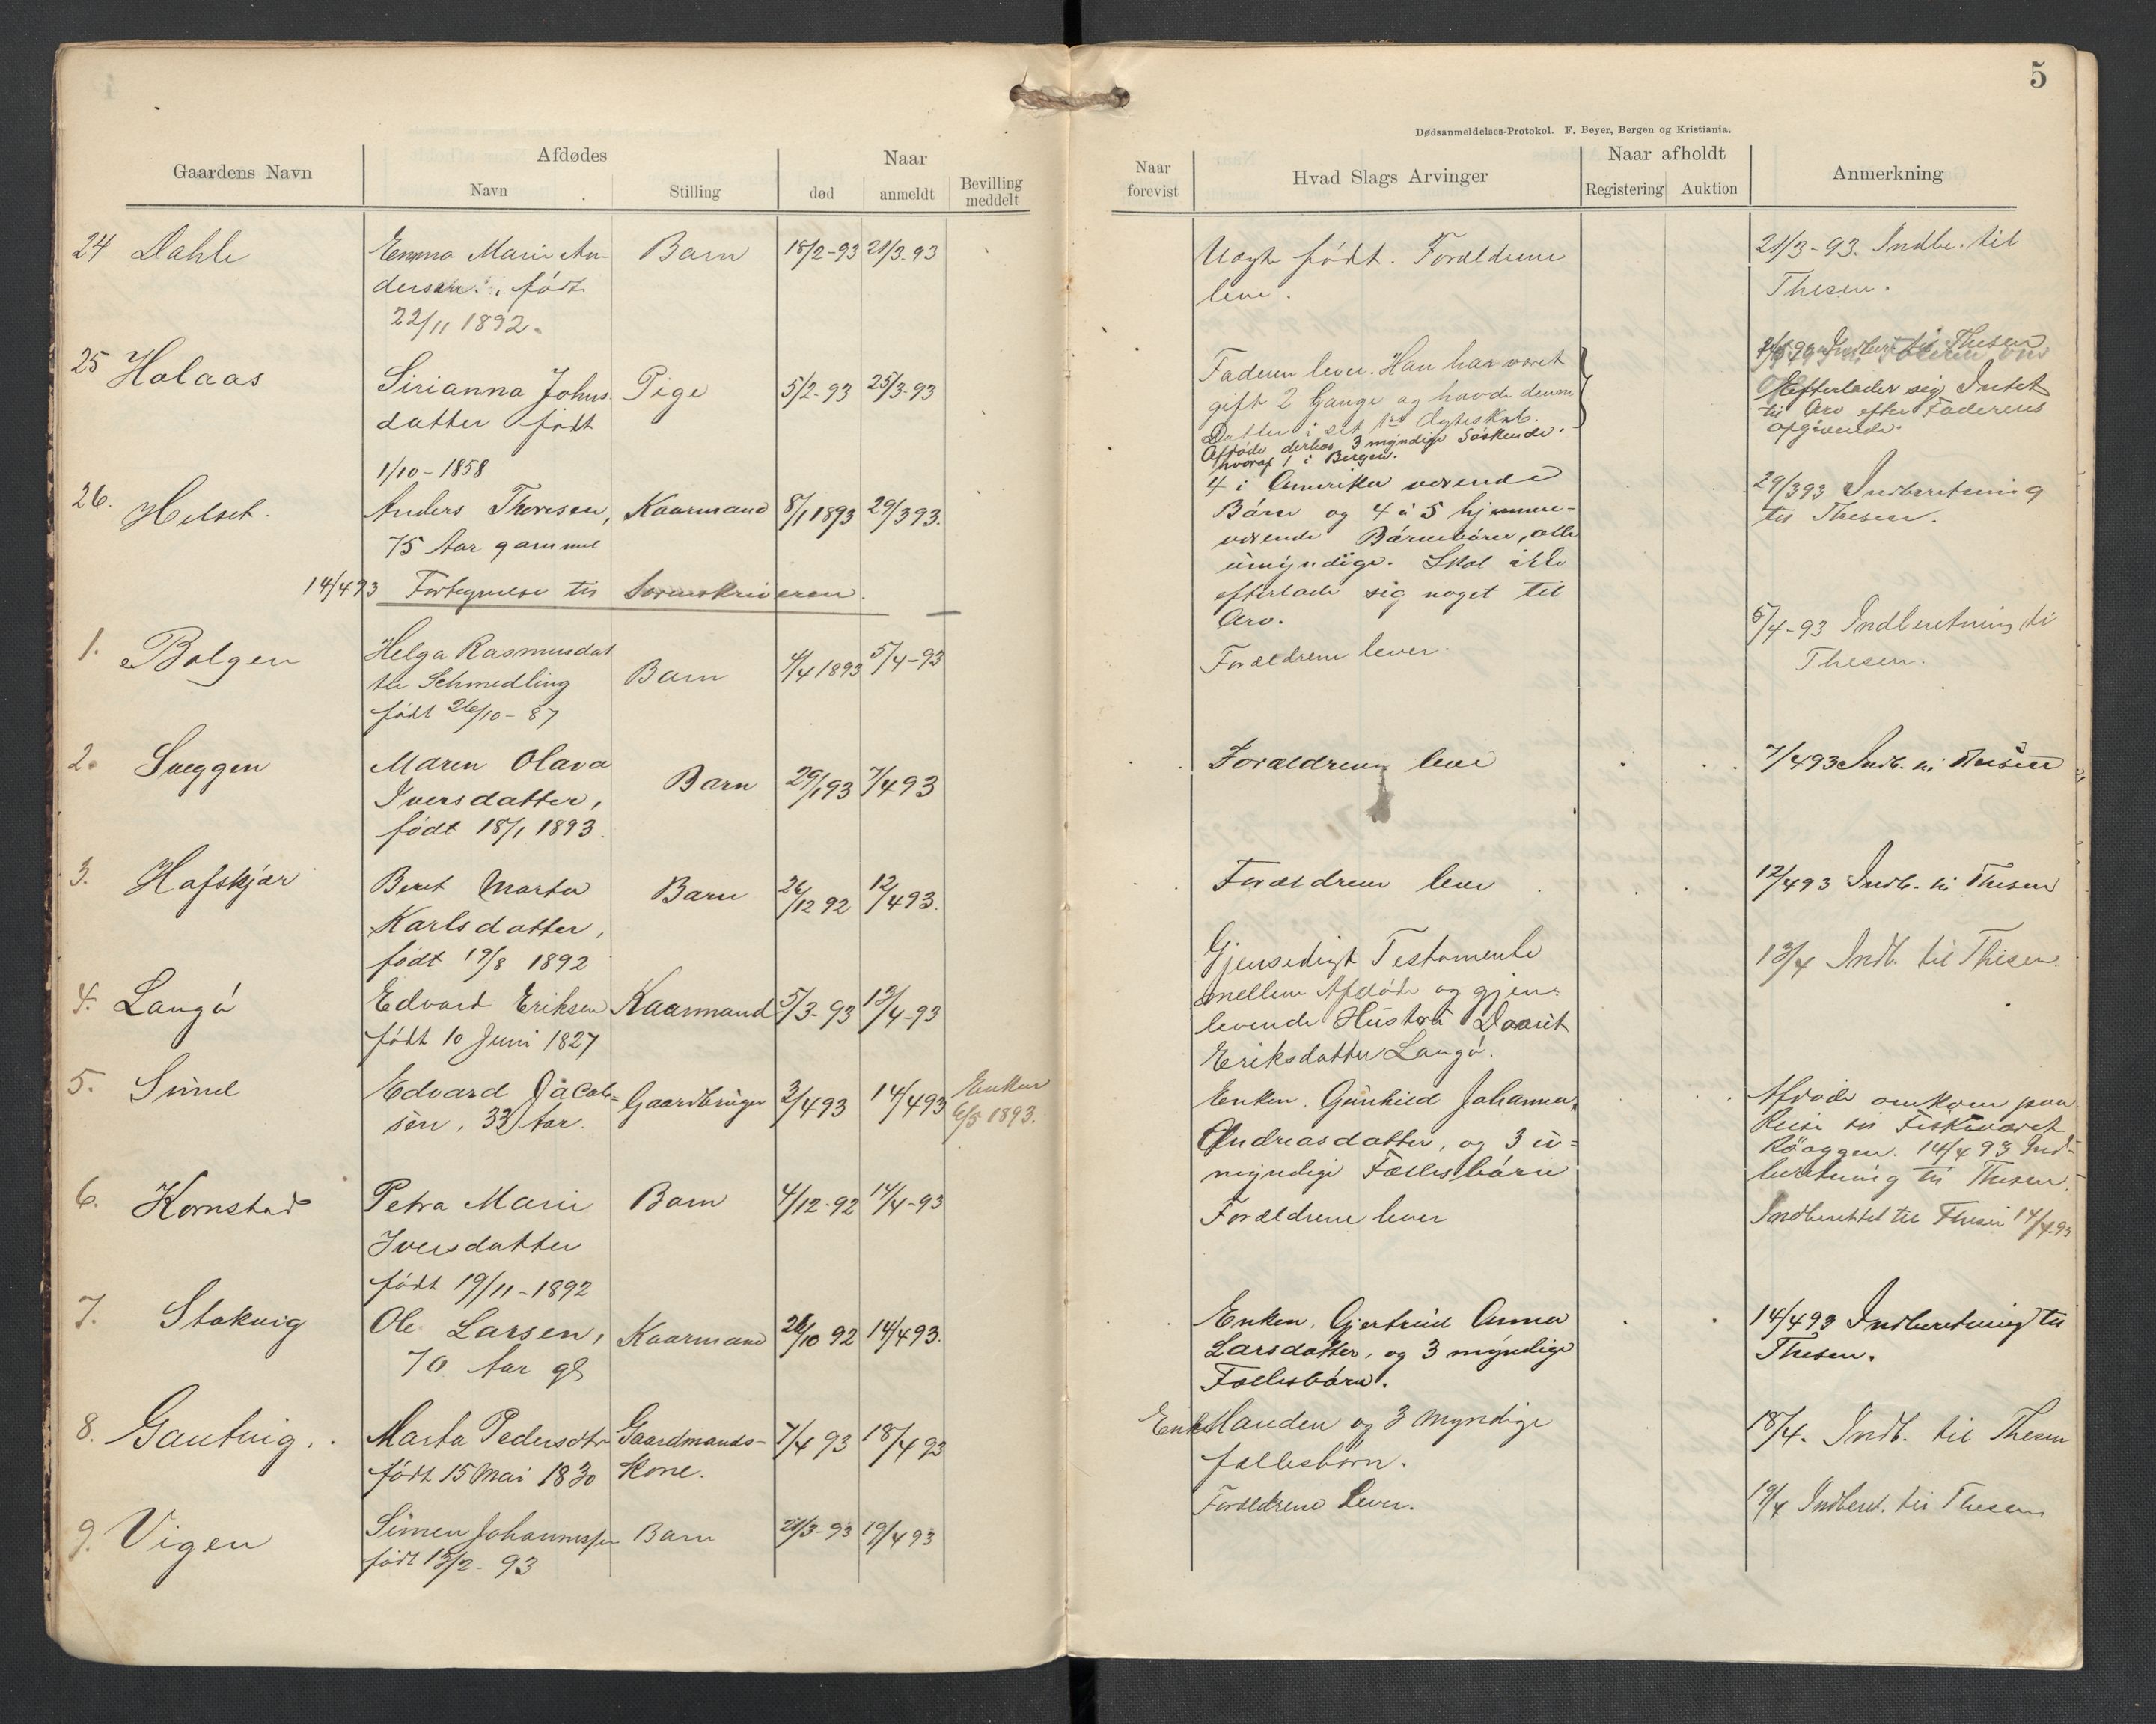 5
Dødsanmeldelses-Protokol. F. Beyer, Bergen og Kristiania.
Gaardens Navn
Afdødes
Navn
Stilling
Naar
død
anmeldt
Bevilling
meddelt
24 Dahle
Emma Marie An-
dersen, født
22/11 1892.
Barn
18/2-93
21/3-93
25 Holaas
Sirianna Johns
datter født
1/10-1858
Pige
5/2-93
25/3-93
26. Helset.
Anders Thoresen,
75 Aar gammel
Kaarmand
8/1 1893
29/3 93.
14/4 93 Fortegnelse til Sorenskriveren.
1. Bolgen
Helga Rasmusdat
ter Schmedling
født 26/10-87
Barn
4/4 1893
5/4-93
2. Sveggen
Maren Olava
Iversdatter,
født 18/1 1893.
Barn
29/1 93
7/4 93
3. Hafskjær
Beret Marta
Karlsdatter,
født 19/8 1892
Barn
26/12 92
12/4 93.
4. Langö
Edvard Eriksen
født 10 Juni 1827
Kaarmand
5/3-93
13/4-93
5. Sund
Edvard Jacob=
sen, 33 Aar.
Gaardbruger
3/4 93
14/4 93
Enken
6/5 1893.
6. Kornstad
Petra Marie
Iversdatter
født 19/11-1892
Barn
4/12-92
14/4-93
7. Stokvig
Ole Larsen,
70 Aar gl
Kaarmand
26/10 92
14/4 93.
8. Gautvig.
Marta Pedersdtr
født 15 Mai 1830
Gaardmands-
Kone.
7/4 93
18/4 93
9. Vigen
Simen Johannessen
født 13/2-93
Barn
21/3-93
19/4 93
Naar
forevist
Hvad Slags Arvinger
Naar afholdt
Registering
Auktion
Anmerkning
Uægte født. Forældrene
leve.
21/3-93. Indbr. til
Thesen.
Faderen lever. Han har været
gift 2 Gange og havde denne
Datter i det 1ste Ægteskab.
Afdøde derhos 3 myndige Søskende.
hvoraf 1 i Bergen.
Indber til Thesen
Efterlader sig Intet
til Arv efter Faderens
opgivende.
4 i Amerika værende
Børn og 4 à 5 hjemme-
værende Børnebørn, alle
umyndige. Skal ikke
efterlade sig noget til
Arv.
29/3 93 Indberetning
til Thesen.
Forældrene lever.
5/4-93 Indberetning til
Thesen.
Forældrene leve
7/4 93 Indb. til Thesen
Forældrene leve
12/4 93 Indb. til Thesen
Gjensidigt Testamente
mellem Afdøde og gjen-
levende Hustru Doarit
Eriksdatter Langö.
13/4 Indb. til Thesen.
Enken, Gunhild Johanna
Andreasdatter, og 3 u=
myndige Fællesbørn
Afdøde omkom paa
Reise til Fiskeværet
Röaggen. 14/4 93 Ind-
beretning til Thesen.
Forældrene lever
Indberettet til Thesen 14/4-93
Enken, Gjertrud Anna
Larsdatter, og 3 myndige
Fællesbørn.
14/4 93 Indberetning til
Thesen.
Enkemanden og 3 myndige
fællesbørn.
18/4. Indb. til Thesen
Forældrene Lever.
19/4 Indberet. til Thesen